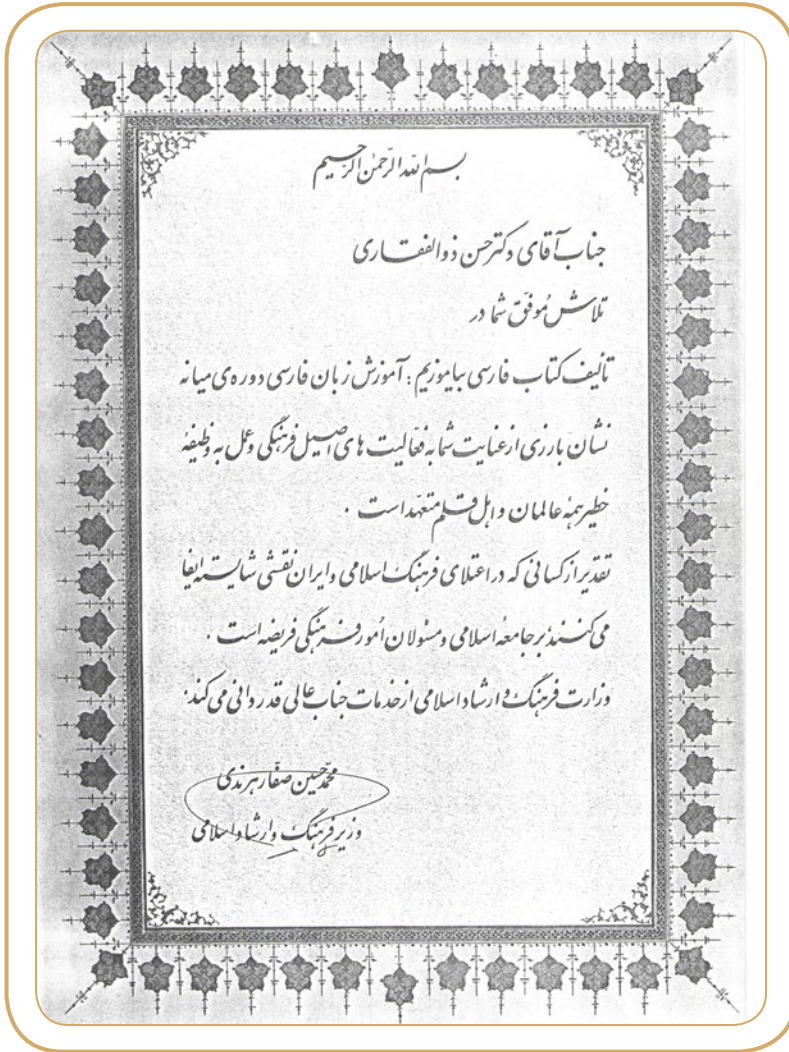 بسم الله الرّحمن الرّحیم
جناب آقای دکتر حسن ذوالفقاری
تلاش مُوفّق شما در
تألیف کتاب فارسی بیاموزیم : آموزش زبان فارسی دوره‌ی میانه
نشان بارزی از عنایت شما به فعّالیت های اصیل فرهنگی و عمل به وظیفهٔ
خطیر همهٔ عالمان و اهل قلم متعهّد است .
تقدیر از کسانی که در اعتلای فرهنگ اسلامی و ایران نقشی شایسته ایفا
می کنند بر جامعهٔ اسلامی و مسئولان اُمور فرهنگی فریضه است .
وزارت فرهنگ و ارشاد اسلامی از خدمات جناب عالی قدردانی می کند .
محمّد حسین صفّار هرندی
وزیر فرهنگ و ارشاد اسلامی